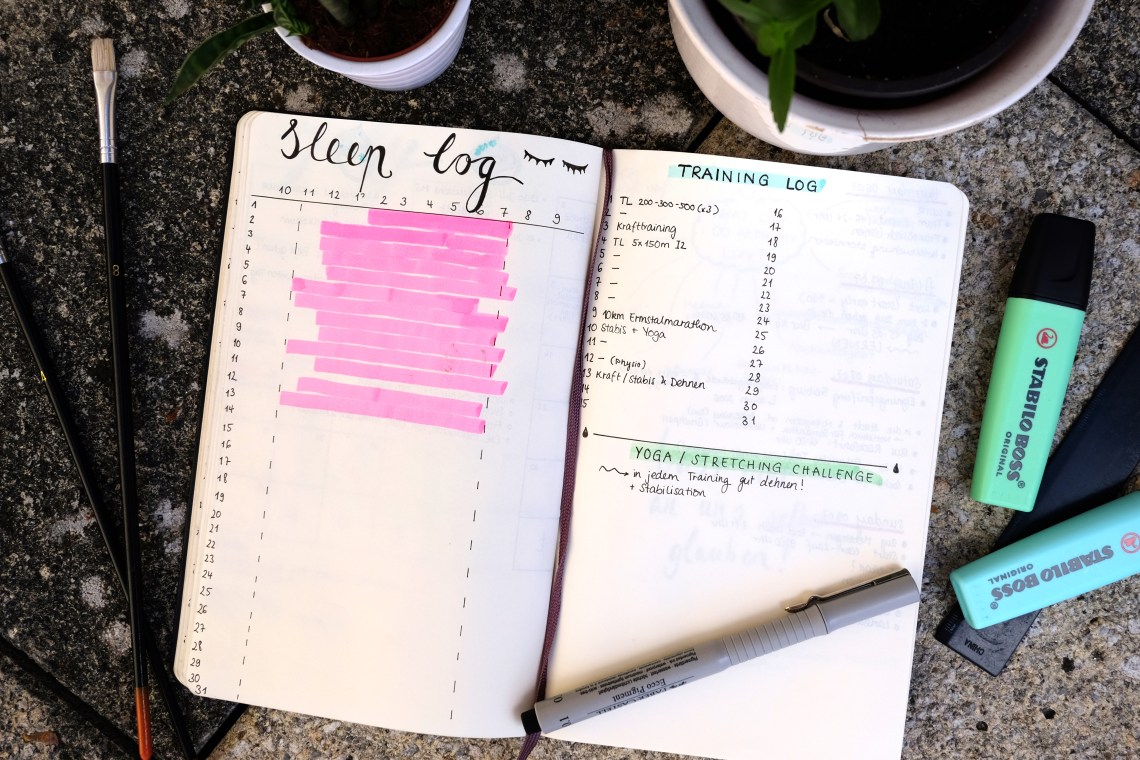 sleep log
10 11 12 1 2 3 4 5 6 7 8 9
1
2
3
4
5
6
7
8
9
10
11
12
13
14
15
16
17
18
19
20
21
22
23
24
25
26
27
28
29
30
31
TRAINING LOG
1 TL 200-300-500 (x3)
2 –
3 Krafttraining
4 TL 5x150m I2
5 –
6 –
7 –
8 –
9 10km Ermstalmarathon
10 Stabis + Yoga
11 –
12 – (Physio)
13 Kraft / Stabis & Dehnen
14
15
16
17
18
19
20
21
22
23
24
25
26
27
28
29
30
31
YOGA / STRETCHING CHALLENGE
in jedem Training gut dehnen!
+ Stabilisation
STABILO BOSS
ORIGINAL
STABILO BOSS
ORIGINAL
CHINA
Ecco Pigment
FABER-CASTELL
glauben!